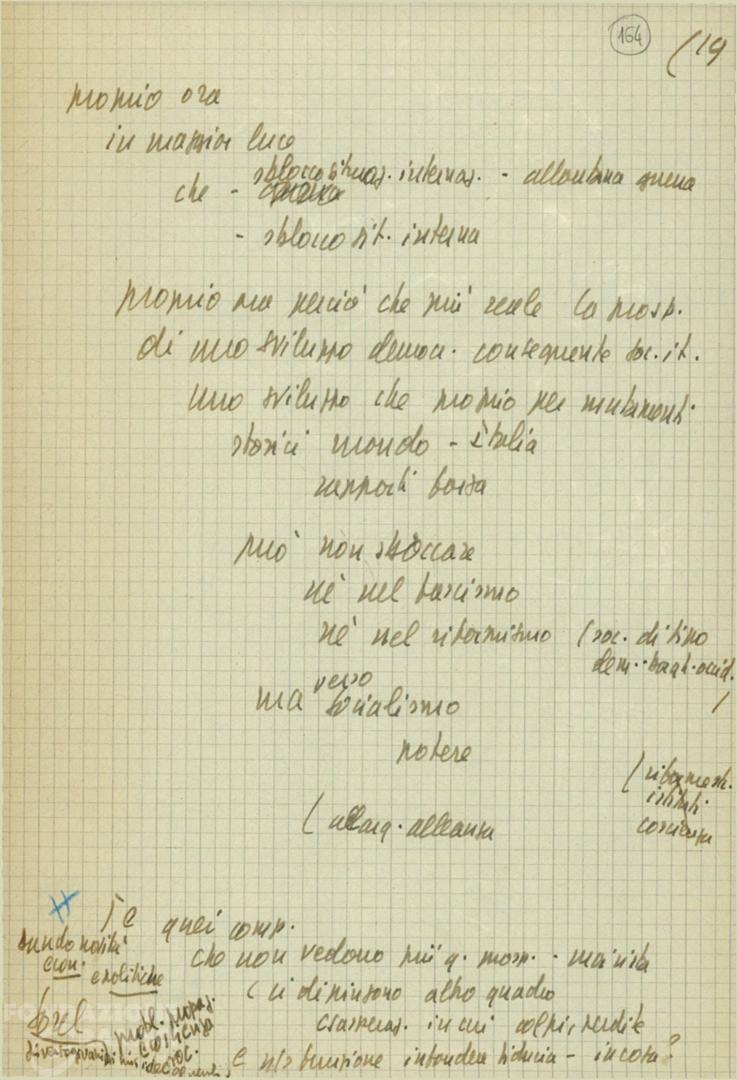 164
(19
proprio ora
in maggior luce
che - sblocco situaz. internaz. - allontana guerra
- sblocco sit. interna
proprio ora perciò che più reale la prosp.
di uno sviluppo democr. conseguente soc. it.
uno sviluppo che proprio per mutamenti
storici mondo - Italia
rapporti forza
può non sboccare
nè nel fascismo
nè nel riformismo (soc. di tipo
dem. occid.
ma verso socialismo
potere
(riforme str.
istituti
coscienza
(allarg. alleanza
E quei comp.
che non vedono più q. prosp. - mai vista
(ci dipinsero altro quadro
in cui colpi, perdite
E ns funzione infonder fiducia - in cosa?
novità
econ. e politiche
probl. propag.
coscienza
soc.